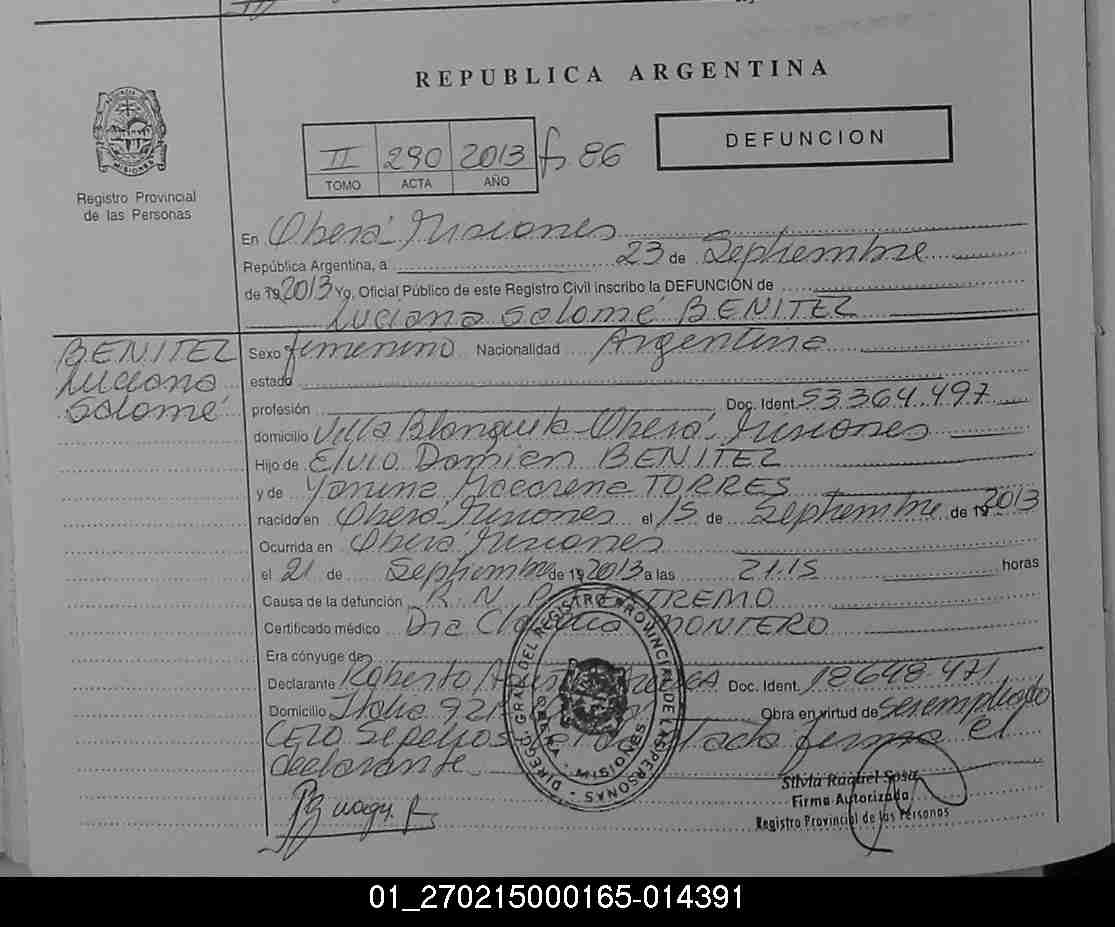 REPUBLICA ARGENTINA
Registro Provincial
de las Personas
II 290 2013 f. 86
TOMO ACTA AÑO
DEFUNCION
En Oberá Misiones
República Argentina, a 23 de Septiembre
de 19 2013 Yo, Oficial Público de este Registro Civil inscribo la DEFUNCIÓN de
Luciana Salomé BENITEZ
BENITEZ
Luciana
Salomé
Sexo femenino Nacionalidad Argentina
estado
profesión Doc. Ident. 53364.497
domicilio Villa Blanquita - Oberá - Misiones
Hijo de Elvio Damien BENITEZ
y de Yanina Macarena TORRES
nacido en Oberá - Misiones el 15 de Septiembre de 19 2013
Ocurrida en Oberá Misiones
el 21 de Septiembre de 19 2013 a las 21.15 horas
Causa de la defunción R. N. P. EXTREMO
Certificado médico Dra Claudia MONTERO
Era cónyuge de
Declarante Roberto Doc. Ident. 18648.471
Domicilio Italia 921 Obra en virtud de ser empleado
Sepelios firma el
declarante
DIREC. GRAL. DEL REGISTRO PROVINCIAL DE LAS PERSONAS
OBERA - MISIONES
Silvia Raquel Sosa
Firma Autorizada
Registro Provincial de las Personas
01_270215000165-014391